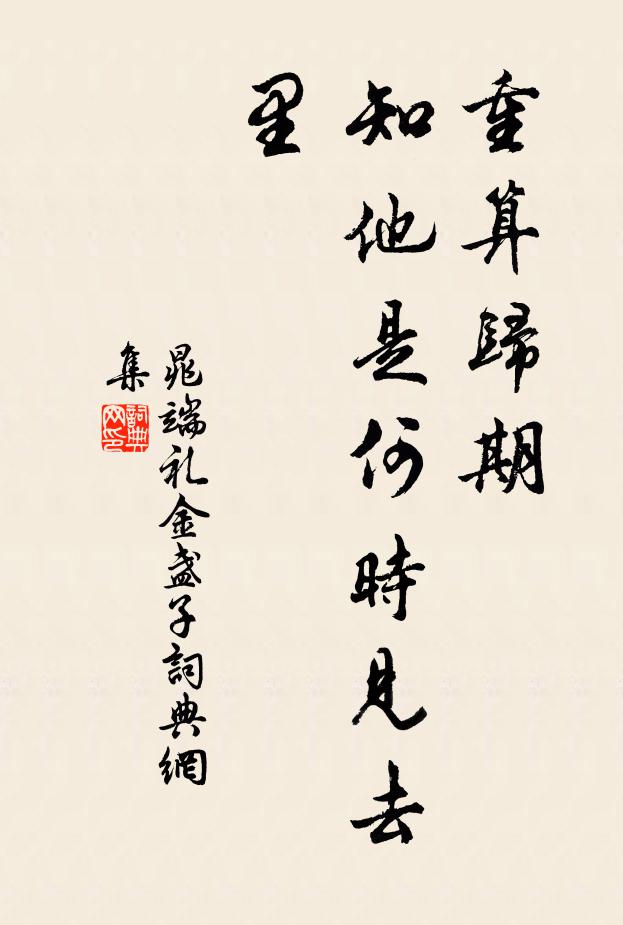 重算歸期
知他是何時見去
里
晁端礼金盏子詞典網
集
詞典网印